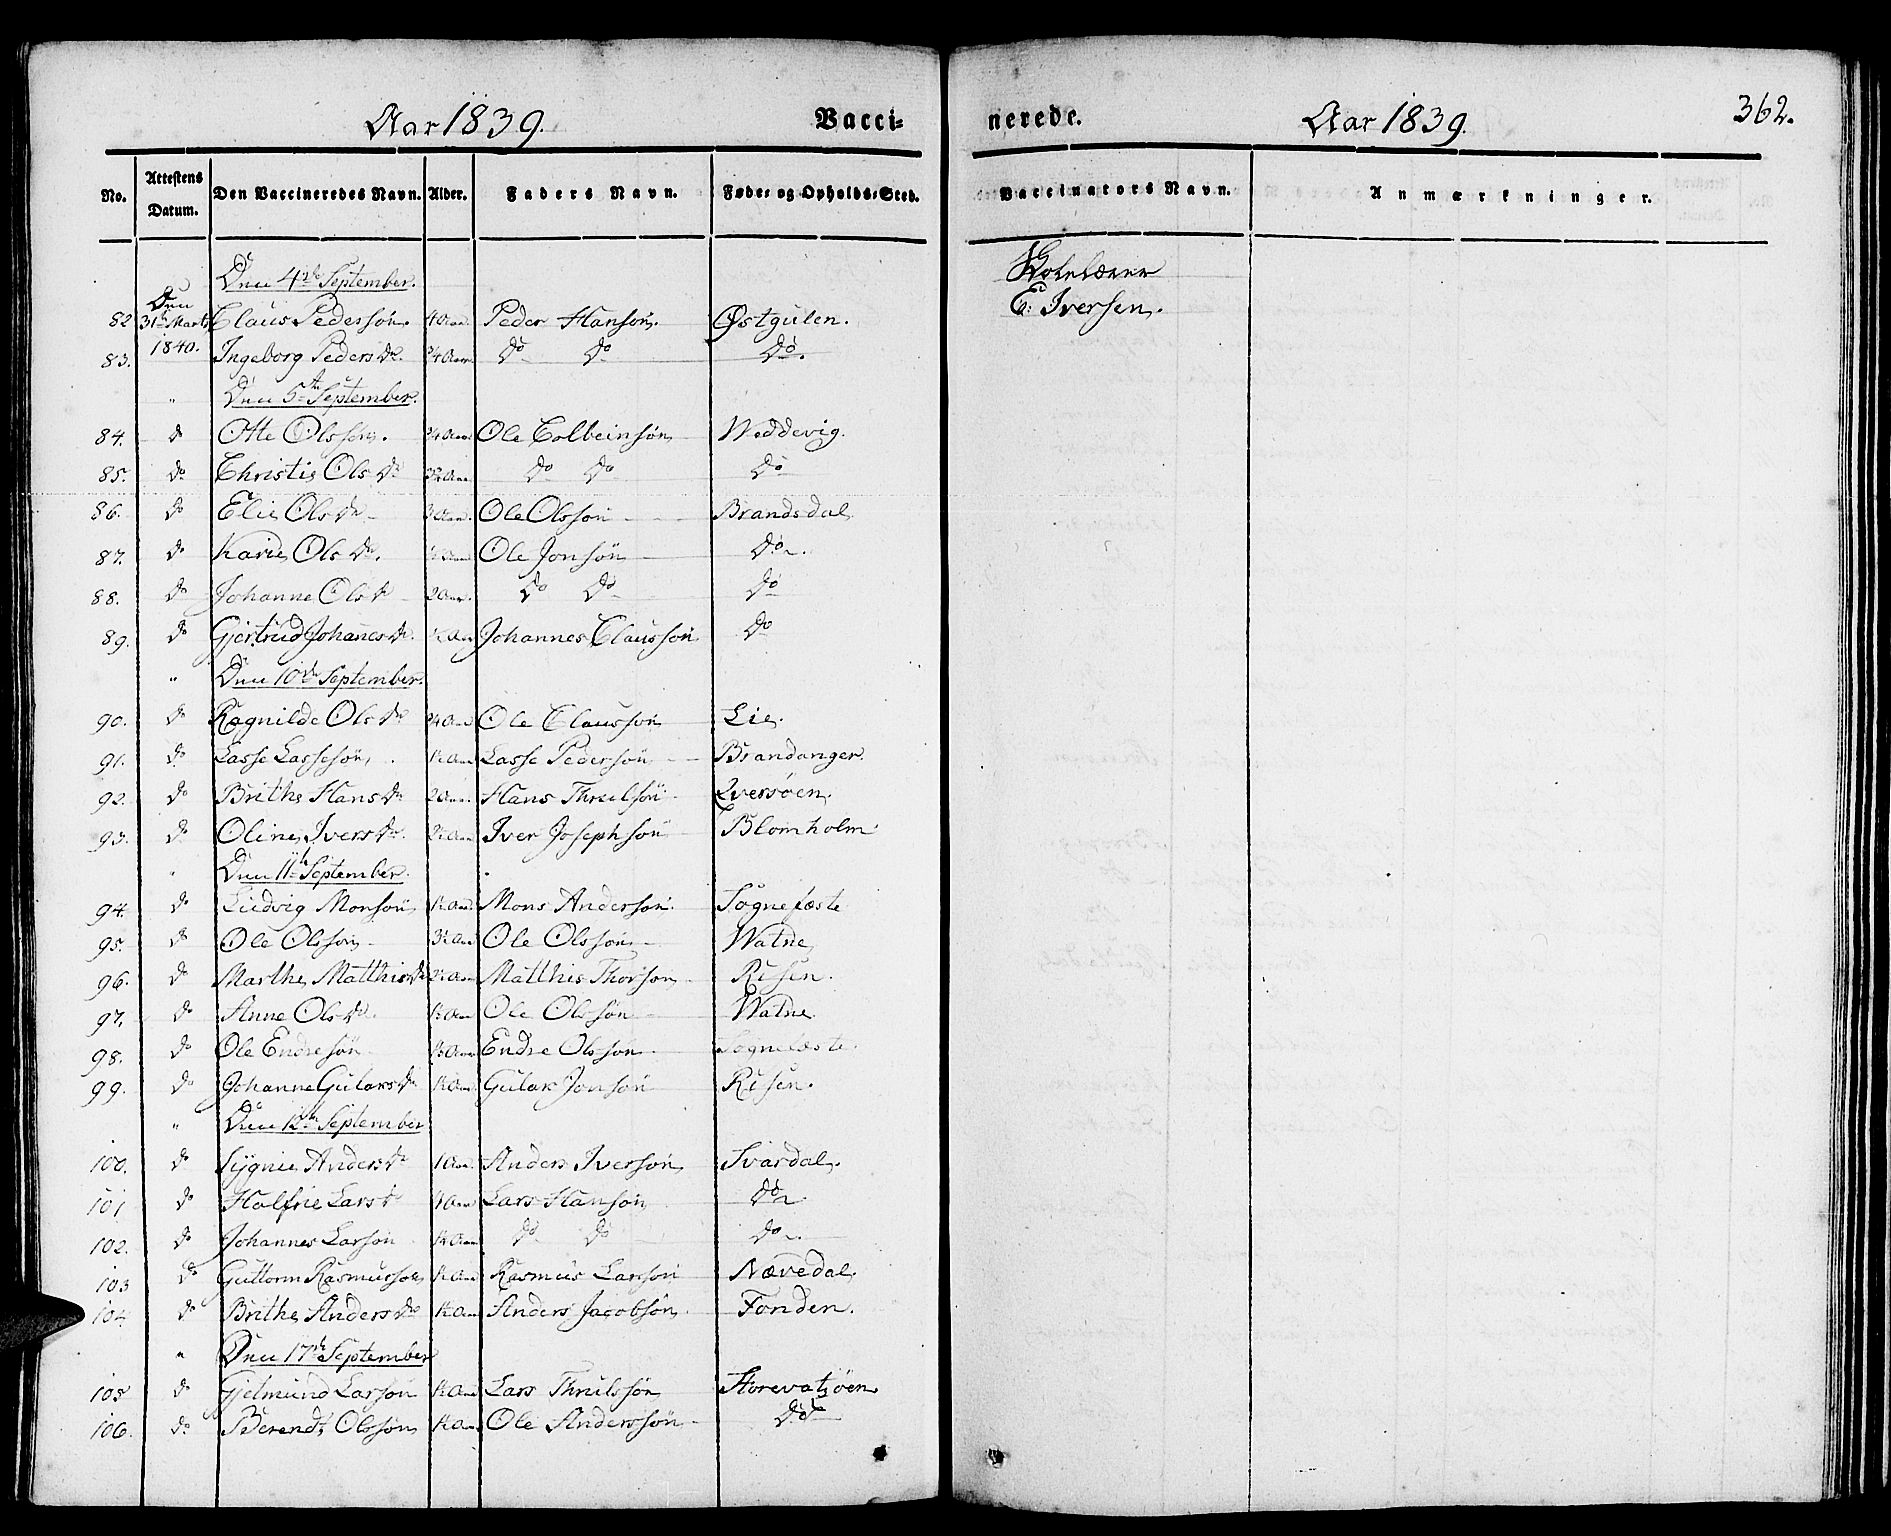 Aar 1839. Vacci-
nerede. Aar 1839. 362.
No. Attestens Datum. Den Vaccineredes Navn. Alder. Faders Navn. Føde- og Opholds-Sted. Vaccinators Navn. Anmærkninger.
Den 4de September. Skolelærer
82 Den 31te Marts Claus Pedersøn. Aar. Peder Hansøn. Østgulen. E: Iversen.
83. 1840. Ingeborg Pedersdr. 3/4 Aar Do Do Do.
" Den 5te September.
84. do Otte Olssøn. 3/4 Aar Ole Colbeinsøn Weddevig.
85. do Christie Olsdr Aar Do Do Do
86. do Elie Olsdr 3 Aar. Ole Olssøn Brandsdal
87. do Karie Olsdr. Aar Ole Jonsøn Do.
88. do Johanne Olsdr 2 Aar. Do Do Do
89. do Gjertrud Johanesdr. Aar Johannes Claussøn Do
" Den 10de September.
90. do Ragnilde Olsdr 3/4 Aar Ole Claussøn Lie.
91. do Lasse Lassesøn, Aar Lasse Pedersøn Brandanger.
92. do Brithe Hansdr 2 Aar. Hans Thrulsøn Qversøen.
93. do Oline Iversdr. Aar Iver Josephsøn Blomholm
" Den 11te September.
94. do Ludvig Monsøn Aar. Mons Andersøn. Sognefæste
95. do Ole Olssøn Aar Ole Olssøn Watne
96. do Marthe Matthisdr Aar Matthis Thorsøn Risen.
97. do Anne Olsdr. Aar Ole Olssøn Watne
98. do Ole Endresøn Aar Endre Olssøn Sognefæste.
99. do Johanne Gulaksdr Aar Gulak Jonsøn Risen.
" Den 12te September
100. do Sygnie Andersdr 1 Aar. Anders Iversøn Svardal.
101 do Halfrie Larsdr Aar Lars Hansøn Do
102. do Johannes Larsøn Aar Do Do Do.
103 do Guttorm Rasmussøn Aar Rasmus Larsøn Nævedal.
104. do Brithe Andersdr Aar Anders Jacobsøn Fonden.
" Den 17de September
105 do Gjelmund Larsøn Aar Lars Thrulssøn Storevatsøen
106. do Berendt Olssøn Aar Ole Anderssøn Do